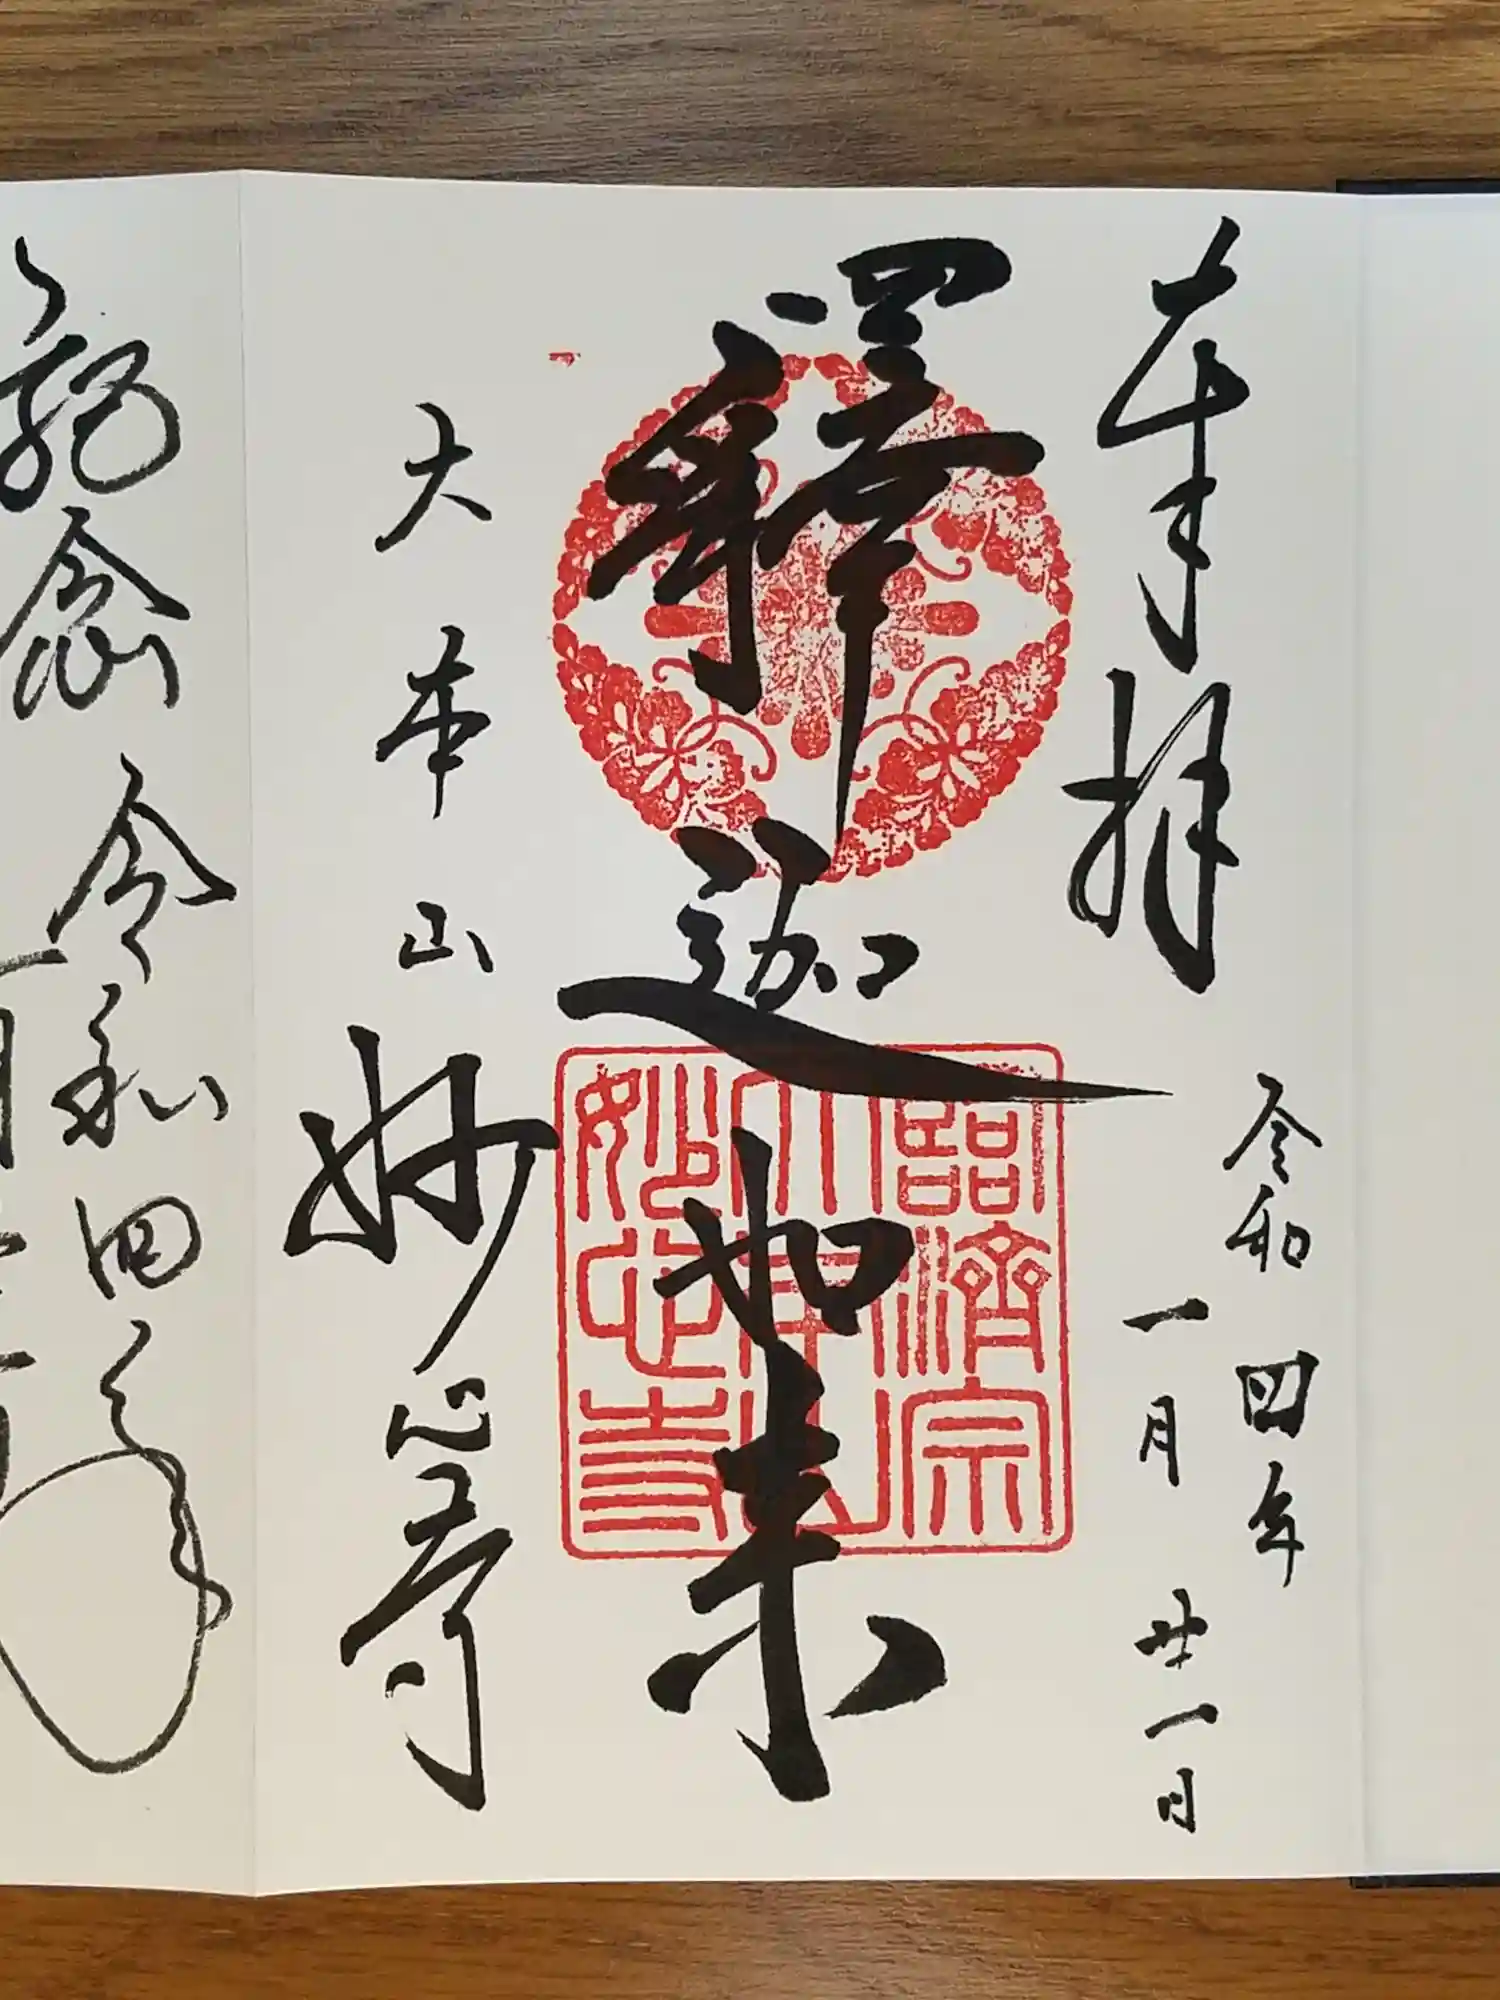 奉拝
令和四年
一月廿一日
釋迦如来
大本山妙心寺
臨濟宗
大本山
妙心寺
念 令和四年